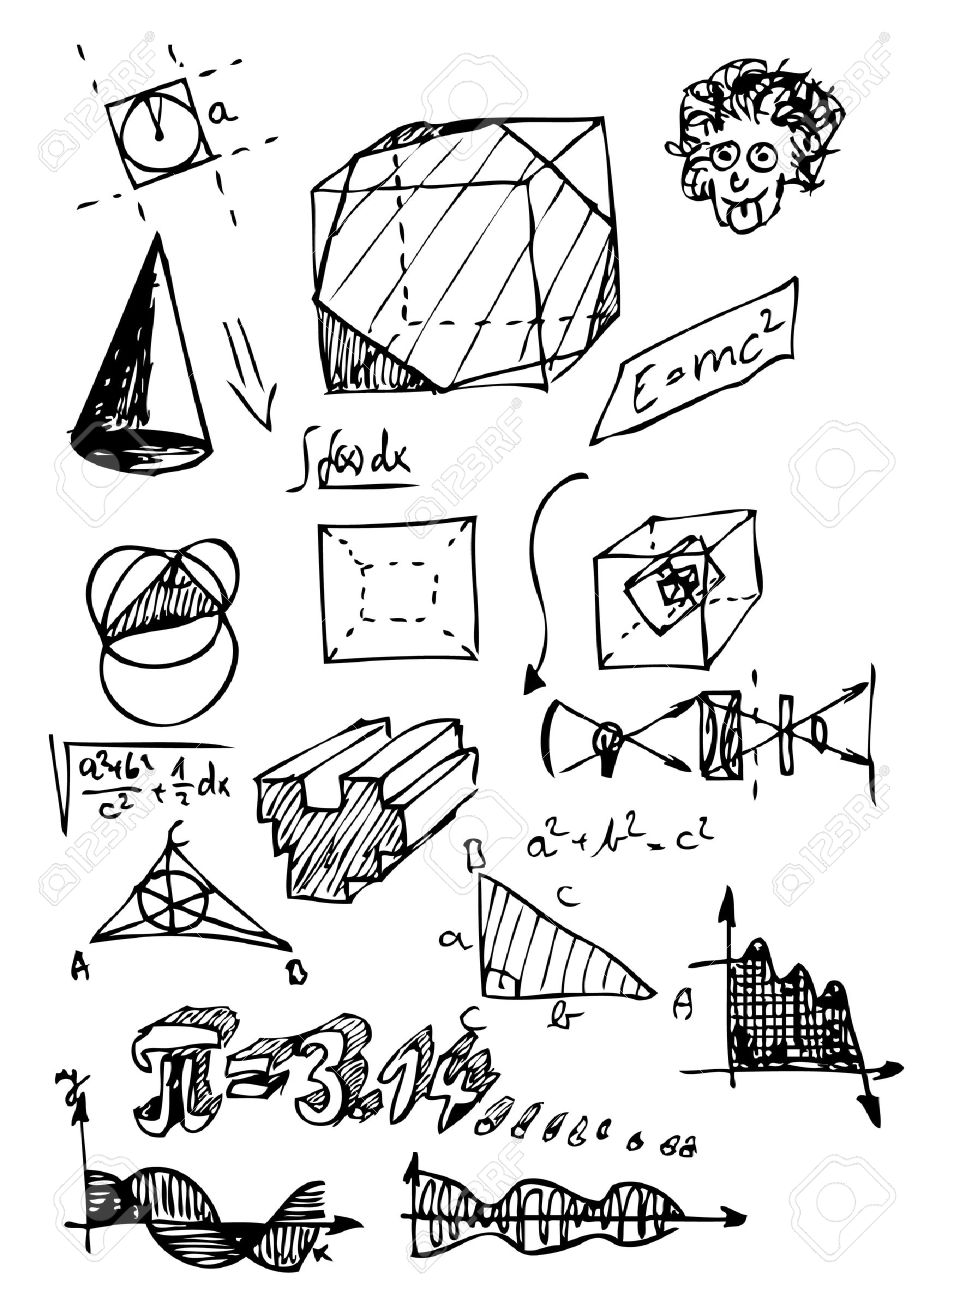 a
E=mc²
∫f(x)dx
√(a²+b²/c² + 1/2 dx)
a²+b²=c²
C
A
B
B
c
a
b
A
C
π=3.14
y
x
123RF